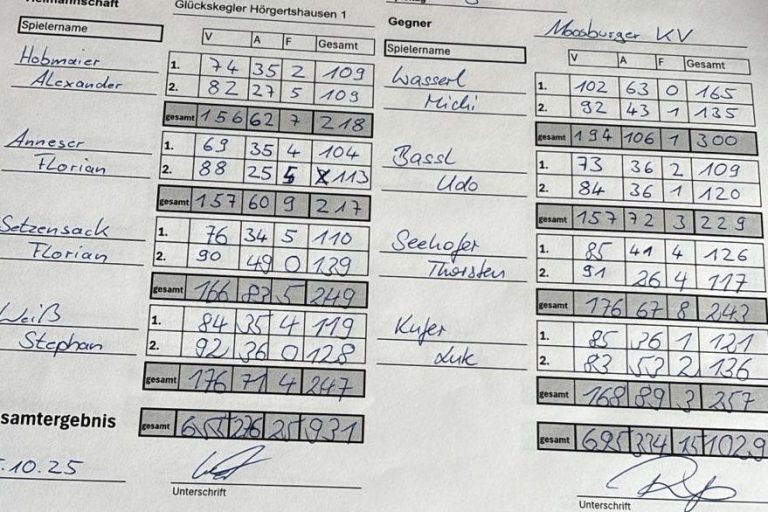 Glückskegler Hörgertshausen 1
Spielername
V A F Gesamt
Hobmaier
Alexander
1. 74 35 2 109
2. 82 27 5 109
gesamt 156 62 7 218
Anneser
Florian
1. 69 35 4 104
2. 88 25 5 113
gesamt 157 60 9 217
Setzensack
Florian
1. 76 34 5 110
2. 90 49 0 139
gesamt 166 83 5 249
Weiß
Stephan
1. 84 35 4 119
2. 92 36 0 128
gesamt 176 71 4 247
samtergebnis
gesamt 655 276 25 931
.10.25
Unterschrift
Gegner
Moosburger KV
Spielername
V A F Gesamt
Wasserl
Michi
1. 102 63 0 165
2. 92 43 1 135
gesamt 194 106 1 300
Bassl
Udo
1. 73 36 2 109
2. 84 36 1 120
gesamt 157 72 3 229
Seehofer
Thorsten
1. 85 41 4 126
2. 91 26 4 117
gesamt 176 67 8 243
Kufer
Luk
1. 85 36 1 121
2. 83 53 2 136
gesamt 168 89 3 257
gesamt 695 334 15 1029
Unterschrift